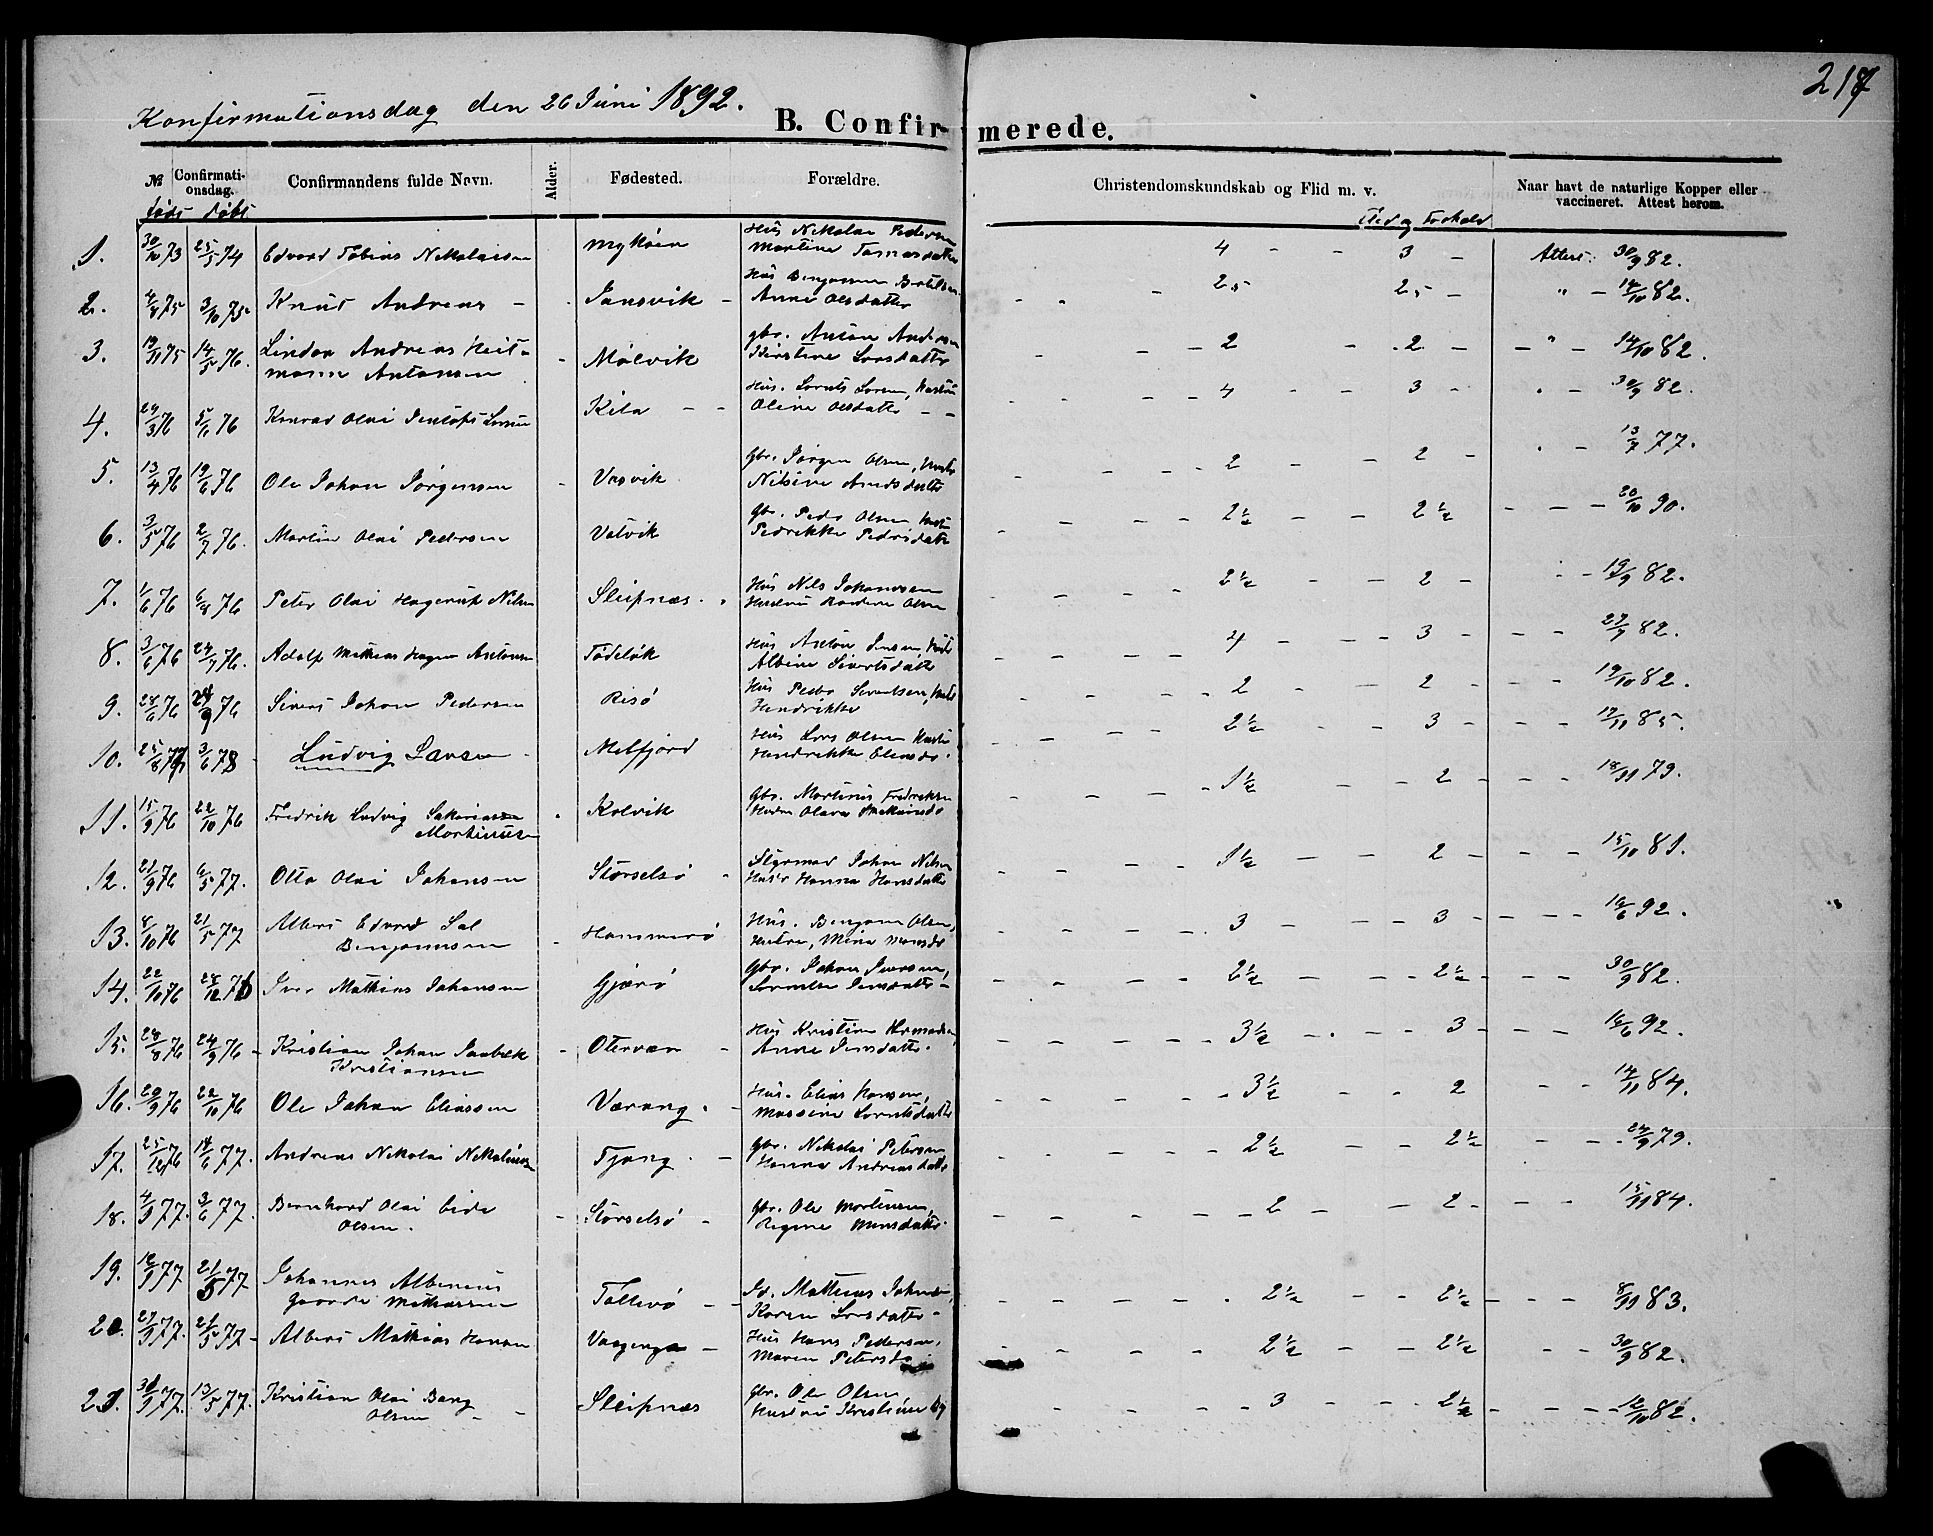 217
Konfirmationsdag den 26 Juni 1892.
B. Confirmerede.
№ Confirmationsdag. Confirmandens fulde Navn. Alder. Fødested. Forældre. Christendomskundskab og Flid m. v. Naar havt de naturlige Kopper eller vaccineret. Attest herom.
født døbt Flid og Forhold
1. 30/10 73 25/5 74 Edvard Tobias Nikolaisen Myken Hus Nikolai Pedersen 4 - - 3 - Attest: 30/9 82.
Martine
2. 4/4 75 3/10 75 Knut Andreas - Jansvik - Hus Benjamin 2,5 2,5 - " - 14/10 82.
Anne Olsdatter
3. 19/11 75 14/5 76. Lindor Andreas Heit- - Molvik gbr. Anton 2 - 2 - - " - 14/10 82.
mann Antonsen Kirstine Larsdatter
4. 29/3 76 5/6 76 Konrad Olai Kila - - Hus. Lornts Larsen, Hustru 4 - 3 - 30/9 82.
Oline Olsdatter - -
5. 13/4 76 19/6 76 Ole Johan Jørgensen - Vasvik Gbr. Jørgen Olsen, 2 - - 2 - - 13/7 77.
Nilsine
6. 3/5 76 2/7 76. Martin Olai Pedersen Valvik gbr. Peder Olsen, 2 1/2 - - 2 1/2 - - - 20/10 90.
Pedrikke Pedersdatter
7. 1/6 76 6/8 76 Peter Olai Hagerup Nilsen Sleipnæs Hus Nils Johannesen 2 1/2 - - 2 - - 19/9 82.
Olsen
8. 3/6 76 24/7 76. Adolf Mathias Hagen Antonsen Tødeløk Hus Anton Jensen, 4 - - 3 - - - 27/7 82.
Albine Sivertsdatter
9. 28/6 76 24/9 76 Sivert Johan Pedersen Risø Hus Peder Sivertsen, 2 - - 2 - - - 19/10 82.
Hendrikke
10. 25/8 77 3/6 78 Ludvig Larsen Melfjord Hus Lars Olsen Hustru 2 1/2 - 3 - - - 17/11 85.
Hendrikke
11. 15/9 76 22/10 76 Fredrik Ludvig Kolvik gbr. Martinus Fredriksen 1 1/2 - 2 - - - 18/11 79.
Martinusen
12. 21/9 76 6/5 77. Otto Olai Johansen Størselsø Styrmad Johan Nilsen 1 1/2 - - 2 - - - 15/10 81.
Hanna Hansdatter
13. 8/10 76 21/5 77 Albert Edvard Sal - Hammerø Hus. Benjamin Olsen, 3 - - 3 - - - 16/6 92.
Benjaminsen Mina
14. 22/10 76 28/12 76 Iver Mathias Johansen Gjærø Gbr. Johan Iversen, 2 1/2 - - 2 1/2 - - - 30/9 82.
Jensdatter -
15. 28/8 76 24/9 76 - Kristian Johan - Otervær - Hus Kristian 3 1/2 - - 3 - - - 16/6 92.
Kristiansen Anne Jensdatter.
16. 20/9 76 22/10 76 Ole Johan Eliassen Værang. - Hus. Elias Hansen, 3 1/2 - - 2 - - 14/11 84.
Massine Lorntsdatter
17. 25/12 76 18/6 77. Andreas Nikolai Nikolaisen Tjong. - gbr. Nikolai Petersen 2 1/2 - - 2 1/2 - - 24/9 79.
Hanna Andreasdatter
18. 4/1 77. 3/6 77. Bernhard Olai Eide - Størselsø - gbr. Ole Mortensen, 2 - - 2 - - - 15/11 84.
Olsen. Regine
19. 12/1 77 21/5 77 Johannes Albenius Tollevø - - Mathias 2 1/2 - - 2 1/2 - - - 8/11 83.
Gaarder Mathiassen Karen Larsdatter -
20. 27/1 77. 21/5 77 - Albert Mathias Hansen Vaagenga - Hus Hans Pedersen, 2 1/2 - - 2 1/2 - - 30/9 82.
Maren
21. 31/1 77. 13/5 77. Kristian Olai Berg Sleipnæs gbr. Ole Olsen, 3 - - 2 1/2 - - - 12/10 82.
Olsen - - Hustru Kristine